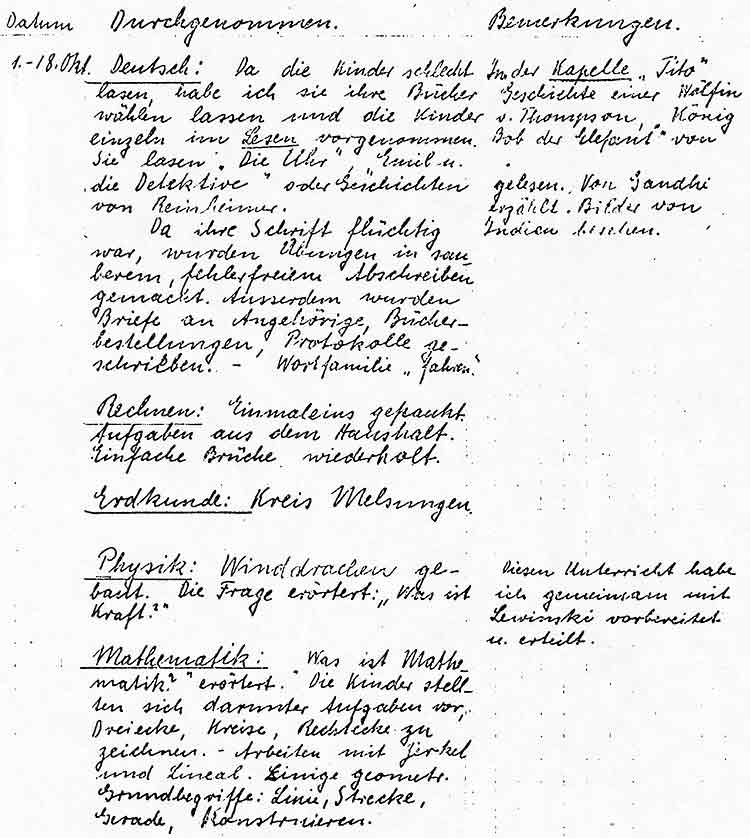 Datum Durchgenommen. Bemerkungen.
1.-18. Okt. Deutsch: Da die Kinder schlecht
lasen, habe ich sie ihre Bücher
wählen lassen und die Kinder
einzeln im Lesen vorgenommen.
Sie lasen „Die Uhr", „Emil u.
die Detektive" oder Geschichten
von Reinheimer.
Da ihre Schrift flüchtig
war, wurden Übungen in sau-
berem, fehlerfreiem Abschreiben
gemacht. Ausserdem wurden
Briefe an Angehörige, Bücher-
bestellungen, Protokolle ge-
schrieben. - Wortfamilie „fahren".
In der Kapelle „Tito"
Geschichte einer Wölfin
v. Thompson, „König
Bob der Elefant" von
gelesen. Von Gandhi
erzählt. Bilder von
Indien besehen.
Rechnen: Einmaleins gepaukt.
Aufgaben aus dem Haushalt.
Einfache Brüche wiederholt.
Erdkunde: Kreis Melsungen.
Physik: Winddrachen ge-
baut. Die Frage erörtert: „Was ist
Kraft?"
Diesen Unterricht habe
ich gemeinsam mit
Lewinski vorbereitet
u. erteilt.
Mathematik: „Was ist Mathe-
matik?" erörtert." Die Kinder stell-
ten sich darunter Aufgaben vor,
Dreiecke, Kreise, Rechtecke zu
zeichnen. - Arbeiten mit Zirkel
und Lineal. Einige geometr.
Grundbegriffe: Linie, Strecke,
Gerade, Konstruieren.